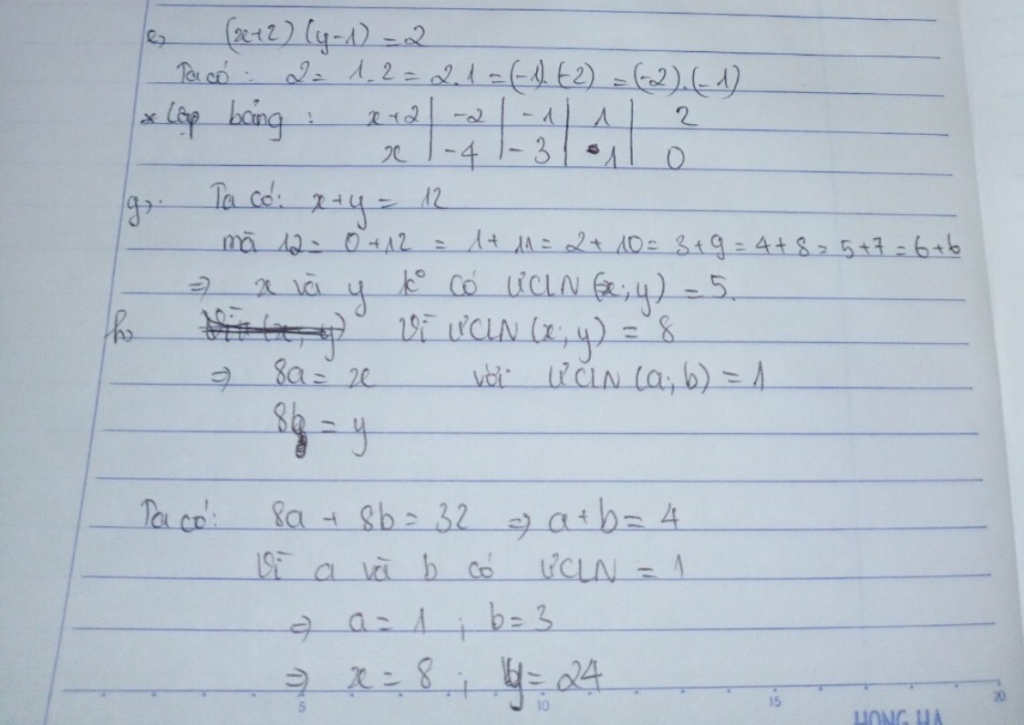 e, (x+2) (y-1) = 2
Ta có: 2 = 1.2 = 2.1 = (-1).(-2) = (-2).(-1)
* Lập bảng: x+2 | -2 | -1 | 1 | 2
x | -4 | -3 | -1 | 0
g, Ta có: x+y = 12
mà 12 = 0+12 = 1+11 = 2+10 = 3+9 = 4+8 = 5+7 = 6+6
⇒ x và y k° có ƯCLN (x; y) = 5.
h, Vì ƯCLN (x; y) = 8
⇒ 8a = x với ƯCLN (a; b) = 1
8b = y
Ta có: 8a + 8b = 32 ⇒ a+b = 4
Vì a và b có ƯCLN = 1
⇒ a = 1 ; b = 3
⇒ x = 8 ; y = 24
5 10 15 20
HONG HA